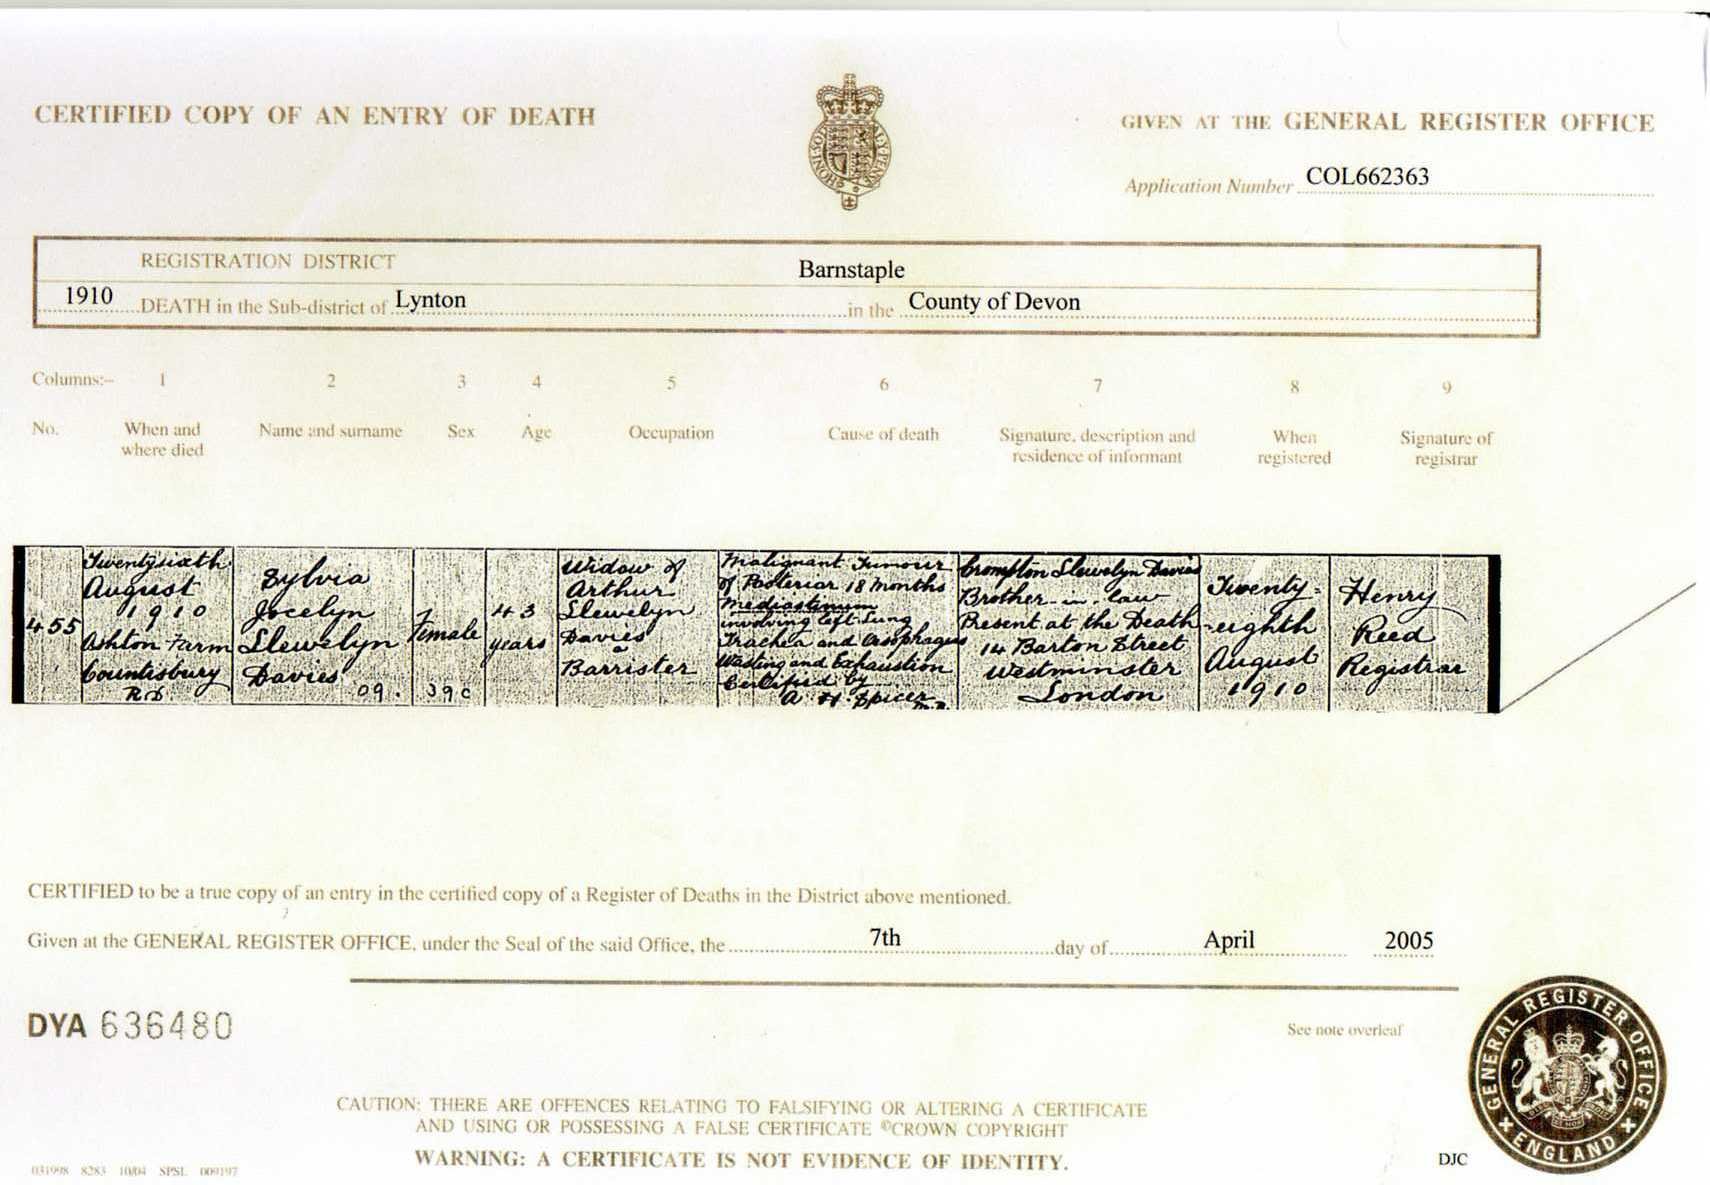 CERTIFIED COPY OF AN ENTRY OF DEATH
HONI SOIT QUI MAL Y PENSE
GIVEN AT THE GENERAL REGISTER OFFICE
Application Number COL662363
REGISTRATION DISTRICT Barnstaple
1910 DEATH in the Sub-district of Lynton in the County of Devon
Columns:– 1 2 3 4 5 6 7 8 9
No.
When and
where died
Name and surname
Sex
Age
Occupation
Cause of death
Signature, description and
residence of informant
When
registered
Signature of
registrar
455
Twentysixth
August
1910
Ashton Farm
Countisbury
R.D.
Sylvia
Jocelyn
Llewelyn
Davies
09. 39c
Female
43
years
Widow of
Arthur
Llewelyn
Davies
a
Barrister
Malignant Tumour
of Posterior 18 Months
Mediastinum
involving left Lung
Trachea and Oesophagus
Wasting and Exhaustion
Certified by
A. H. Spicer
M.B.
Crompton Llewelyn Davies
Brother-in-law
Present at the Death
14 Barton Street
Westminster
London
Twenty-
-eighth
August
1910
Henry
Reed
Registrar
CERTIFIED to be a true copy of an entry in the certified copy of a Register of Deaths in the District above mentioned.
Given at the GENERAL REGISTER OFFICE, under the Seal of the said Office, the 7th day of April 2005
DYA 636480
See note overleaf
CAUTION: THERE ARE OFFENCES RELATING TO FALSIFYING OR ALTERING A CERTIFICATE
AND USING OR POSSESSING A FALSE CERTIFICATE ©CROWN COPYRIGHT
WARNING: A CERTIFICATE IS NOT EVIDENCE OF IDENTITY.
031998 8283 10/04 SPSL 009197
DJC
GENERAL REGISTER OFFICE
ENGLAND